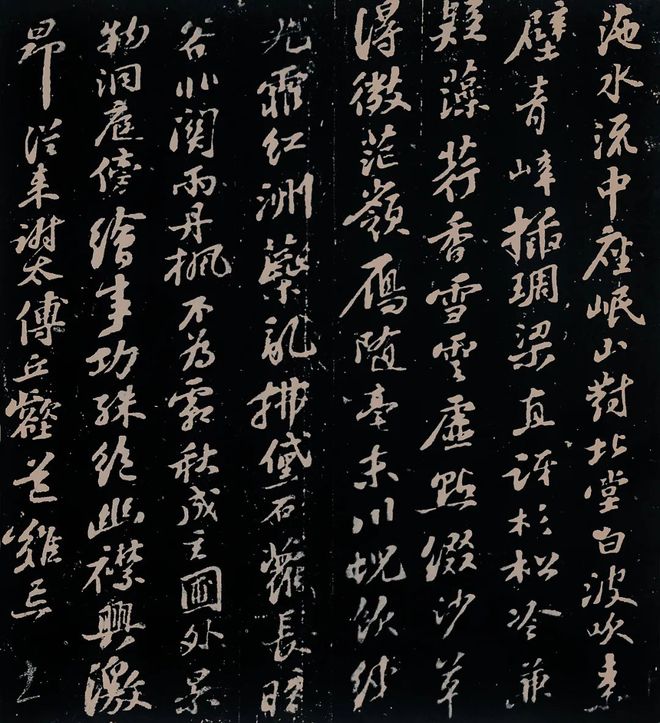 沲水流中座岷山對北堂白波吹素
壁青嶂插琱梁直訝杉松冷兼
疑藻荇香雪雲虛點綴沙草
得微茫嶺鴈随毫末川蜺飲練
光霏紅洲蘂亂拂黛石蘿長暗
谷非關雨丹楓不為霜秋成玄圃外景
物洞庭傍繪事功殊絶幽襟興激
昂從來謝太傅丘壑道難忘